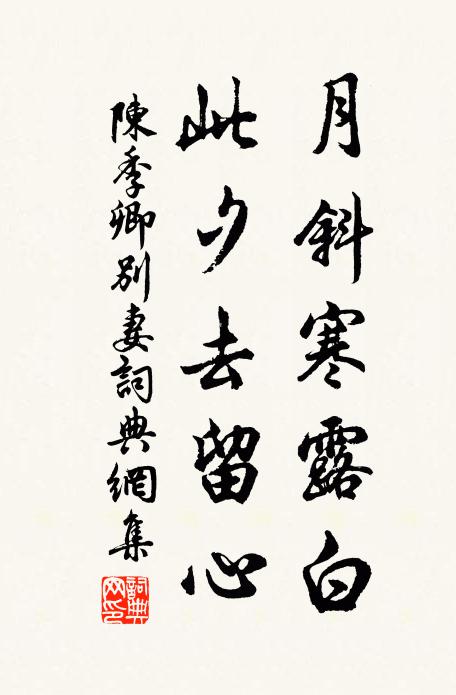 月斜寒露白
此夕去留心
陳季卿別妻詞典網集
詞典網印